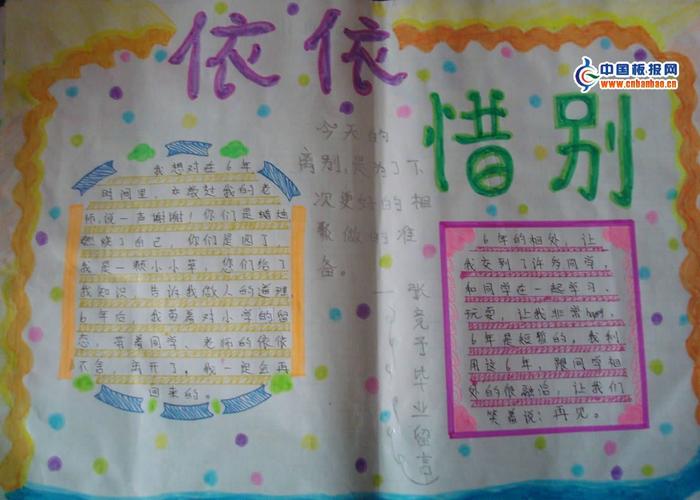 依依
惜别
中国板报网
www.cnbanbao.cn
今天的
离别,是为了下
次更好的相
聚做的准
备。
——张竞予毕业留言
我想对在6年
时间里,在教过我的老
师,说一声谢谢!你们是蜡烛
燃烧了自己,你们是园丁
我是一颗小小草,您们给了
我知识,告诉我做人的道理
6年后,我带着对小学的留
恋,带着同学、老师的依依
不舍,离开了。我一定会再
回来的。
6年的相处,让
我交到了许多同学,
和同学在一起学习、
玩耍,让我非常happy。
6年是短暂的,我利
用这6年,跟同学相
处的很融洽,让我们
笑着说:再见。